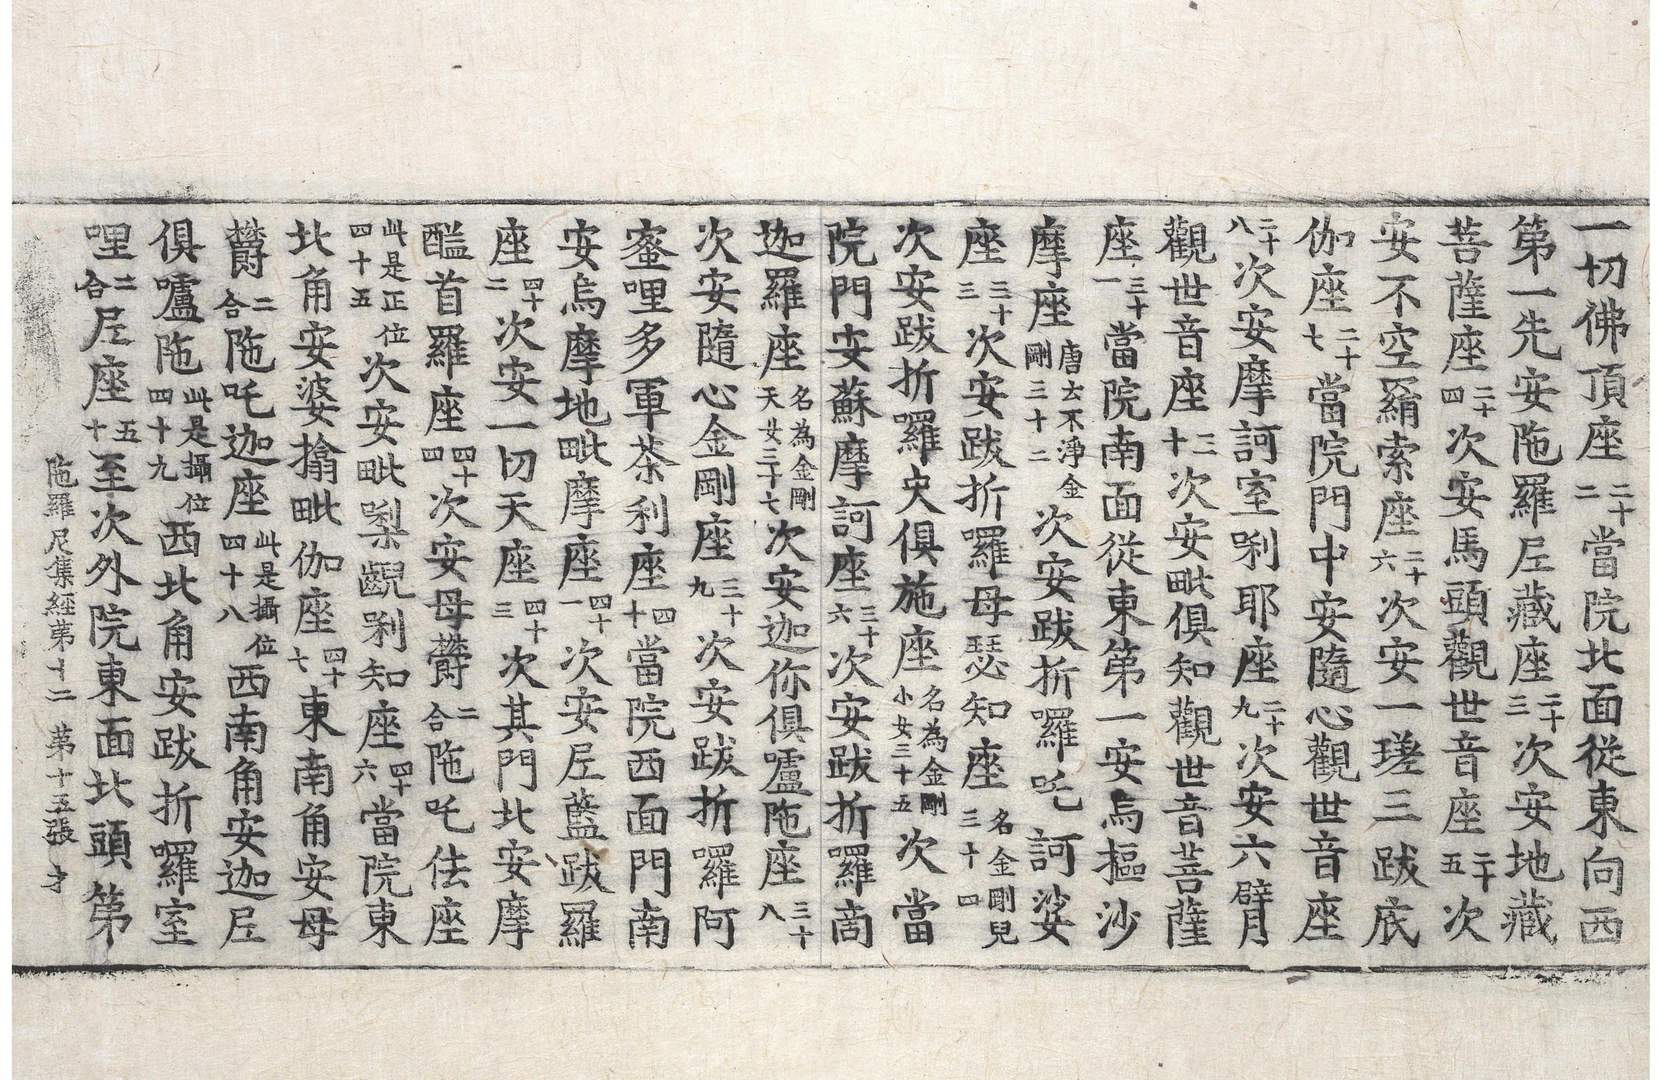 一切佛頂座二十二當院北面從東向西
第一先安陁羅尼藏座二十三次安地藏
菩薩座二十四次安馬頭觀世音座二十五次
安不空羂索座二十六次安一瑳三跋底
伽座二十七當院門中安隨心觀世音座
二十八次安摩訶室唎耶座二十九次安六臂
觀世音座三十次安毗俱知觀世音菩薩
座三十一當院南面從東第一安烏樞沙
摩座唐云不淨金剛三十二次安跋折囉吒訶娑
座三十三次安跋折囉母瑟知座名金剛兒三十四
次安跋折囉央俱施座名為金剛小女三十五次當
院門安蘇摩訶座三十六次安跋折囉商
迦羅座名為金剛天女三十七次安迦你俱嚧陁座三十八
次安隨心金剛座三十九次安跋折囉阿
蜜哩多軍荼利座四十當院西面門南
安烏摩地毗摩座四十一次安尼藍跋羅
座四十二次安一切天座四十三次其門北安摩
醯首羅座四十四次安母欝二合陁吒佉座
此是正位四十五次安毗㗚齓唎知座四十六當院東
北角安婆擒毗伽座四十七東南角安母
欝二合陁吒迦座此是攝位四十八西南角安迦尼
俱嚧陁此是攝位四十九西北角安跋折囉室
哩二合尼座五十至次外院東面北頭第
陁羅尼集經第十二　第十五張　才